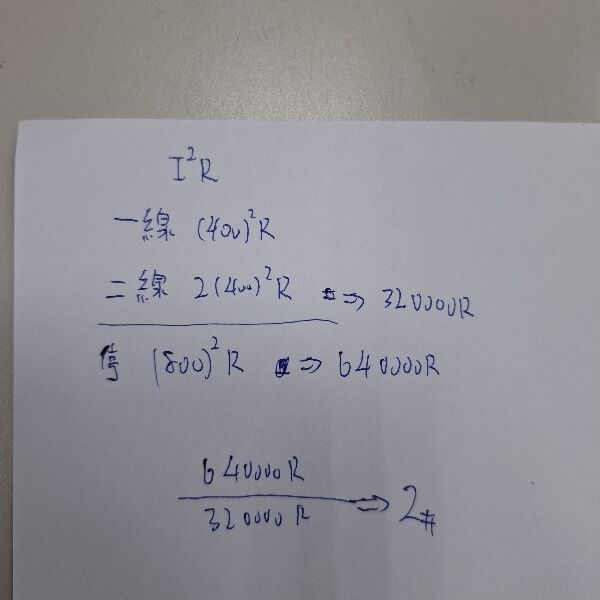 I²R
一線 (400)²R
二線 2(400)²R ⇒ 320000R
停 (800)²R ⇒ 640000R
640000R
320000R ⇒ 2#